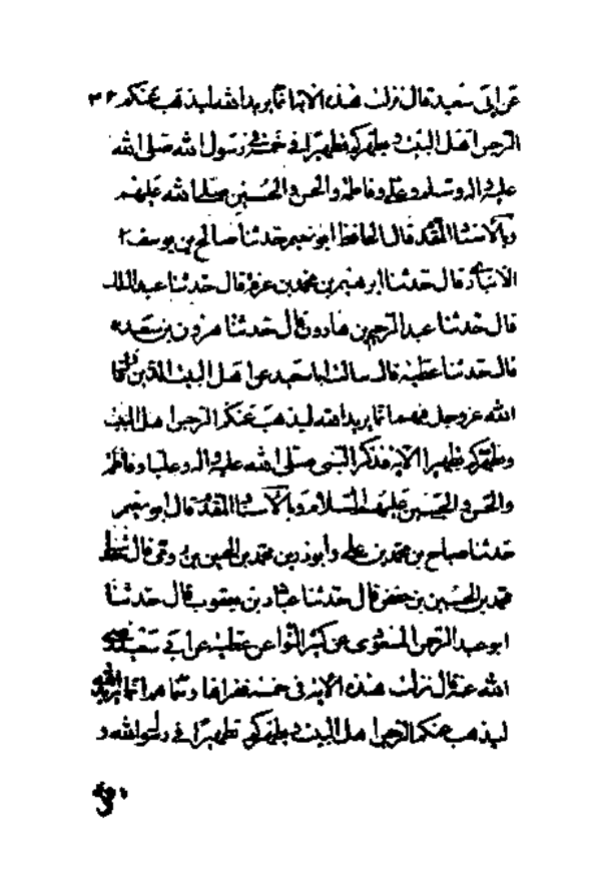 عن ابي سعيد قال نزلت هذه الاية انما يريد الله ليذهب عنكم
الرجس اهل البيت و يطهركم تطهيرا في خمسة في رسول الله صلى الله
عليه واله وسلم وعلي وفاطمة والحسن والحسين صلى الله عليهم
وبالاسناد المقدم قال الحافظ ابو نعيم حدثنا صالح بن يوسف
الانباري قال حدثنا ابرهيم بن محمد بن عرفة قال حدثنا عبد الملك
قال حدثنا عبد الرحيم بن هارون قال حدثنا هرون بن سعيد
قال حدثنا عطية قال سالت ابا سعيد عن اهل البيت الذين قال
الله عز وجل فيهم انما يريد الله ليذهب عنكم الرجس اهل البيت
ويطهركم تطهيرا الاية فذكر النبي صلى الله عليه واله وعليا وفاطمة
والحسن والحسين عليهم السلام وبالاسناد المقدم قال ابو نعيم
حدثنا صباح بن محمد بن علي وابوذر بن محمد بن الحسين بن قال
محمد بن الحسين بن حفص قال حدثنا عباد بن يعقوب قال حدثنا
ابو عبد الرحمن المسعودي عن كثير النوا عن عطية عن ابي سعيد رضي
الله عنه قال نزلت هذه الاية في خمسة نفر انما يريد الله
ليذهب عنكم الرجس اهل البيت و يطهركم تطهيرا في رسول الله و